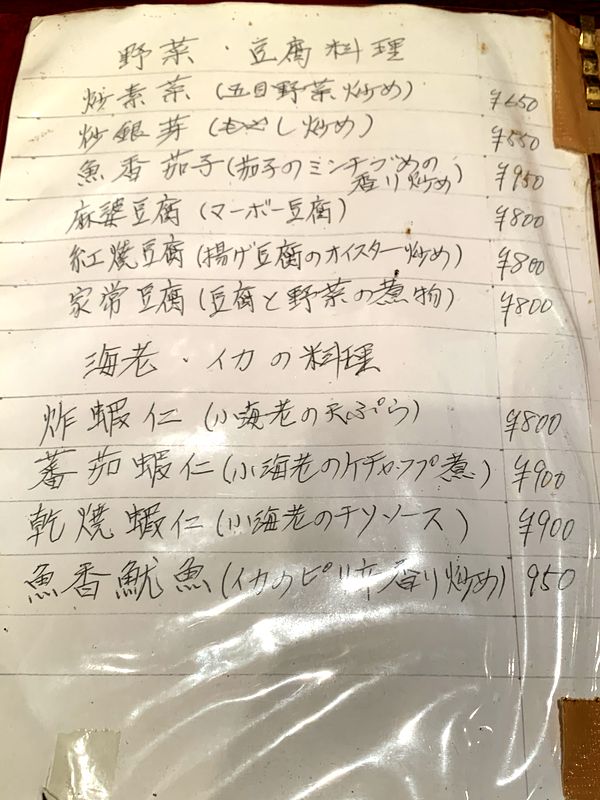 野菜・豆腐料理
炒素菜(五目野菜炒め) ¥650
炒銀芽(もやし炒め) ¥550
魚香茄子(茄子のミンチづめの
香り炒め) ¥950
麻婆豆腐(マーボー豆腐) ¥800
紅焼豆腐(揚げ豆腐のオイスター炒め) ¥800
家常豆腐(豆腐と野菜の煮物) ¥800
海老・イカの料理
炸蝦仁(小海老の天ぷら) ¥800
蕃茄蝦仁(小海老のケチャップ煮) ¥900
乾焼蝦仁(小海老のチリソース) ¥900
魚香魷魚(イカのピリ辛香り炒め) 950